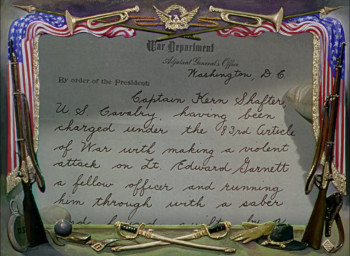 War Department
Adjutant General's Office
Washington, D.C.
By order of the President:
Captain Kern Shafter,
U. S. Cavalry, having been
charged under the 93rd Article
of War with making a violent
attack on Lt. Edward Garnett
a fellow officer and running
him through with a saber